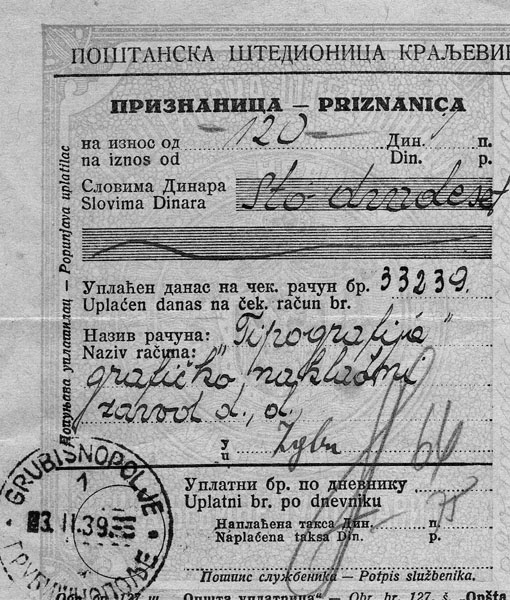 ПОШТАНСКА ШТЕДИОНИЦА КРАЉЕВИ
ПРИЗНАНИЦА — PRIZNANICA
на износ од — 120 — Дин. п.
na iznos od Din. p.
Словима Динара
Slovima Dinara Sto dvadeset
Уплаћен данас на чек. рачун бр. 33239.
Uplaćen danas na ček. račun br.
Назив рачуна: "Tipografija"
Naziv računa:
grafičko nakladni
zavod d. d.
у
u Zgbu
Уплатни бр. по дневнику
Uplatni br. po dnevniku
Наплаћена такса Дин. п.
Naplaćena taksa Din. p.
Потпис службеника — Potpis službenika.
Попуњава уплатилац — Popunjava uplatilac
GRUBIŠNOPOLJE
1
3. II. 39
ГРУБИШНОПОЉЕ
Obr. br. 127 „Општа уплатница“ — Obr. br. 127. š. „Opšta